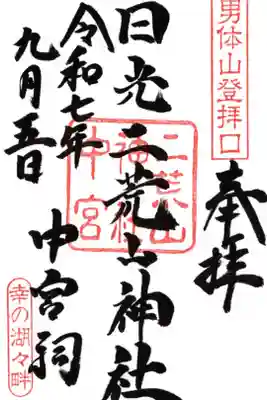 男体山登拝口
奉拝
日光二荒山神社
中宮祠
二荒山
神社
中宮
令和七年
九月五日
幸の湖々畔